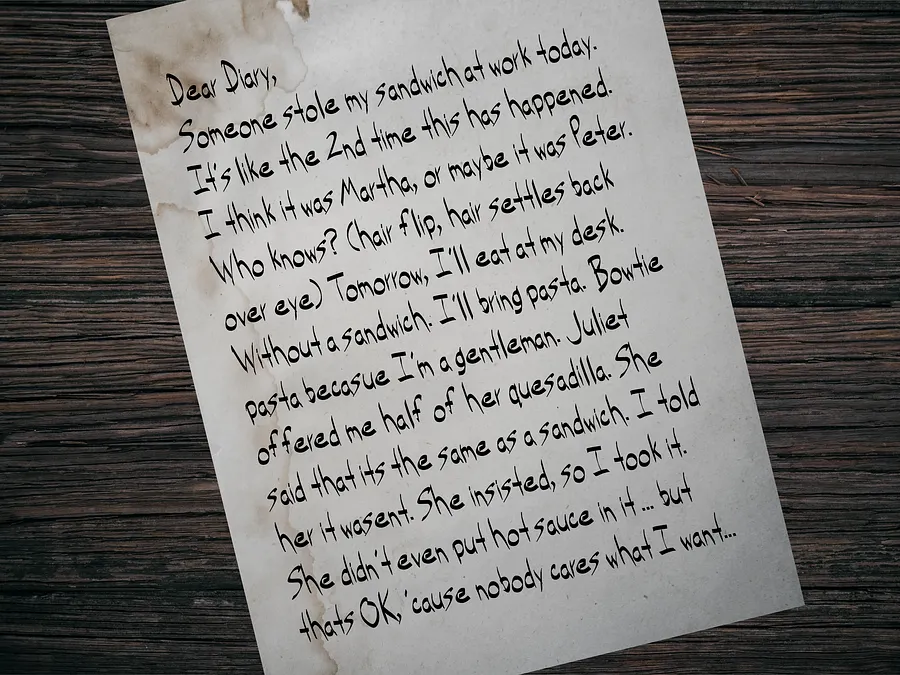 Dear Diary,
Someone stole my sandwich at work today.
It's like the 2nd time this has happened.
I think it was Martha, or maybe it was Peter.
Who knows? (hair flip, hair settles back
over eye) Tomorrow, I'll eat at my desk.
Without a sandwich. I'll bring pasta. Bowtie
pasta becasue I'm a gentleman. Juliet
offered me half of her quesadilla. She
said that its the same as a sandwich. I told
her it wasent. She insisted, so I took it.
She didn't even put hot sauce in it ... but
thats OK, 'cause nobody cares what I want...